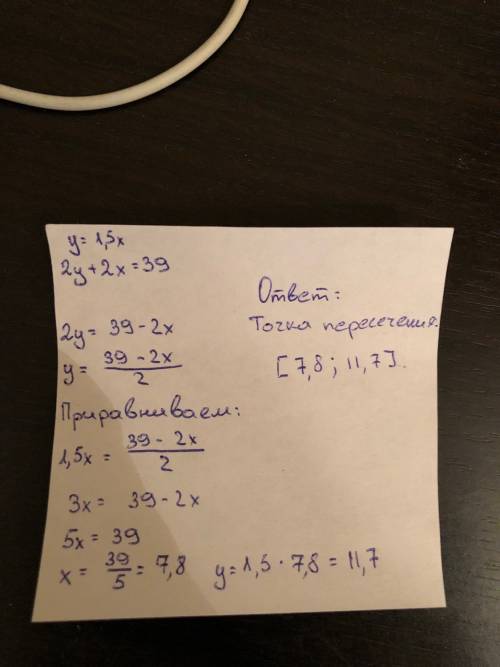 y = 1,5x
2y + 2x = 39
2y = 39 - 2x
y = \frac{39 - 2x}{2}
Приравниваем:
1,5x = \frac{39 - 2x}{2}
3x = 39 - 2x
5x = 39
x = \frac{39}{5} = 7,8 y = 1,5 · 7,8 = 11,7
Ответ:
Точка пересечения:
[7,8 ; 11,7].